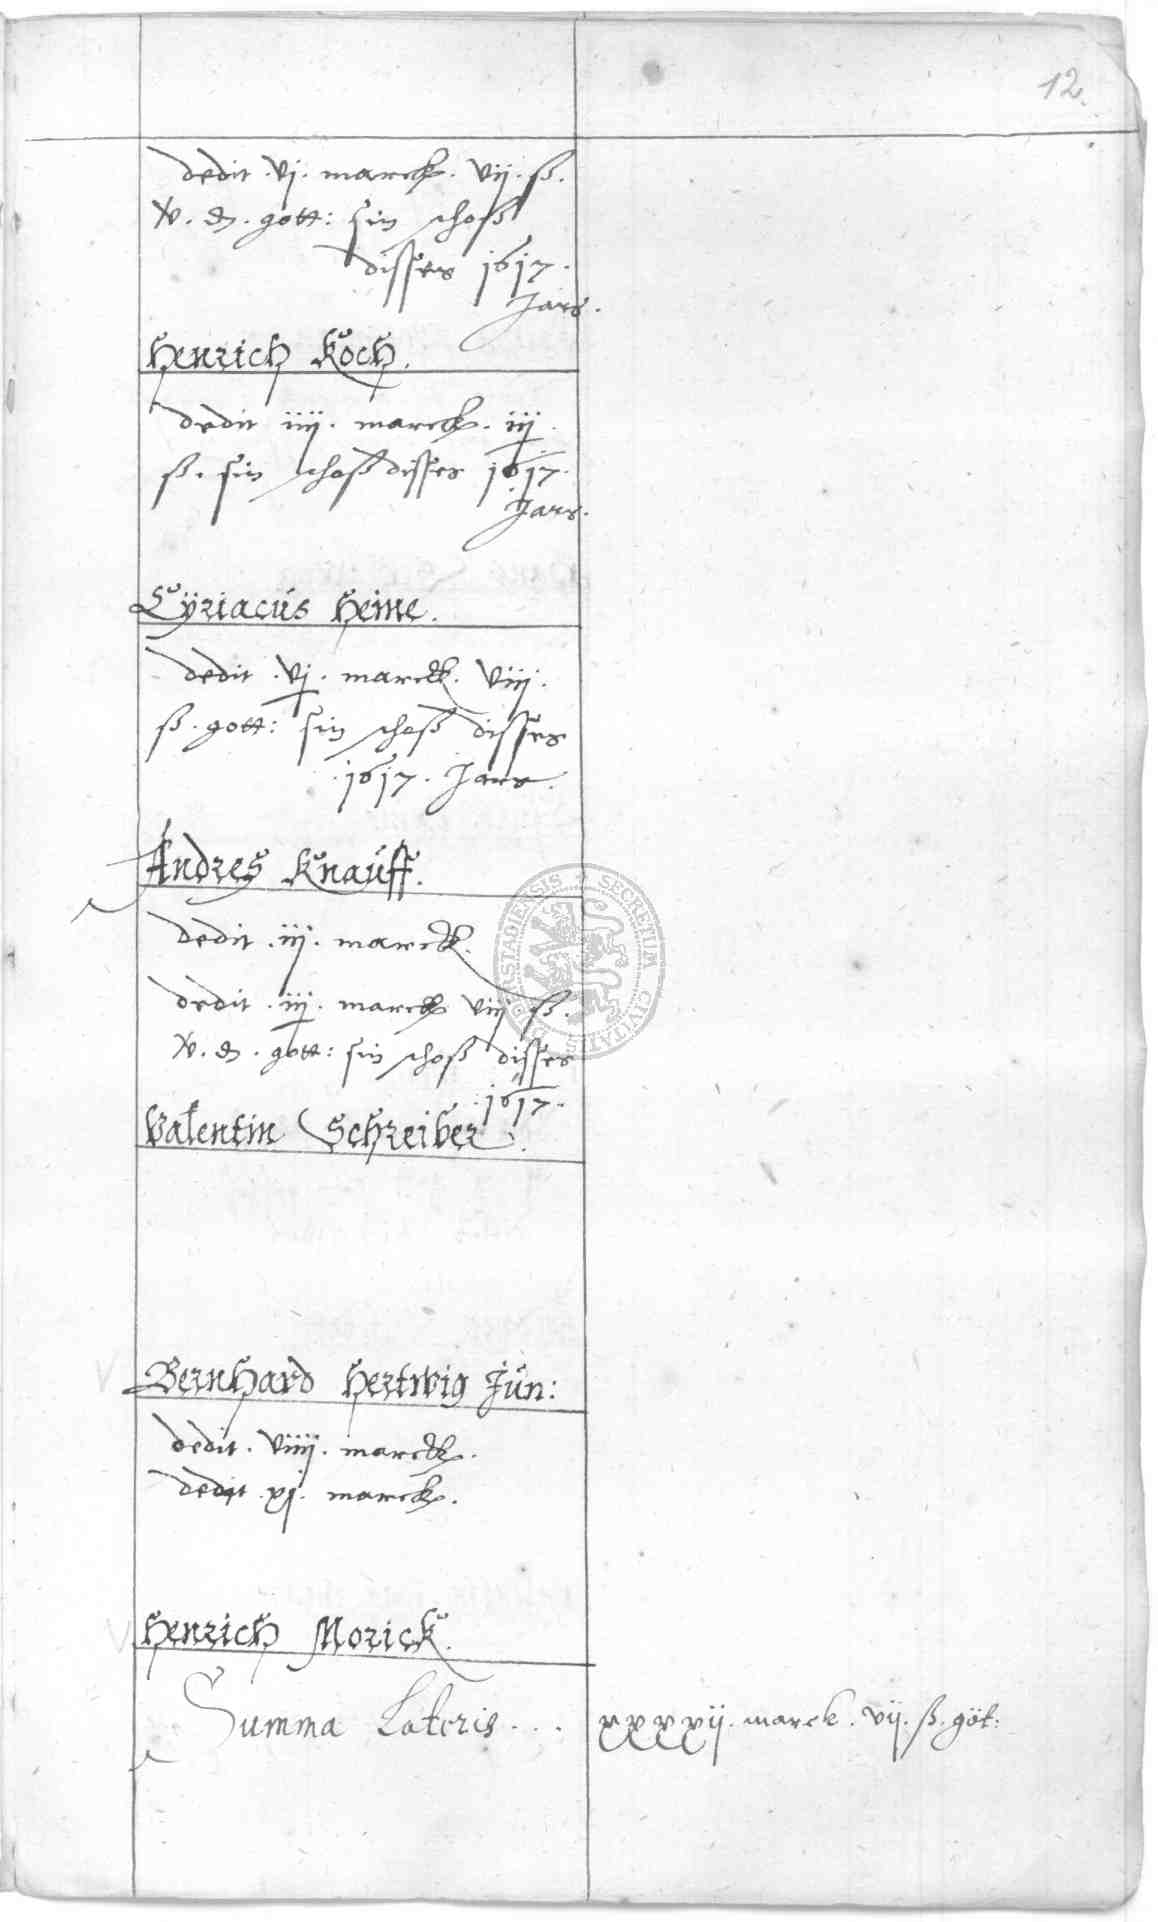 12.
dedit . vj . marck . vij . ß .
v . ₰ . gott : sin schoß
disses 1617 .
Jars .
Henrich Koch .
dedit iiij . marck . iij .
ß . sin schoß disses 1617 .
Jars .
Cÿriacus Heine .
dedit . vj . marck . viij .
ß . gott : sin schoß disses
. 1617 . Jars .
Andres Knauff .
dedit . iij . marck .
dedit . iij . marck viij ß .
v . ₰ . gott : sin schoß disses
. 1617 .
Valentin Schreiber .
Bernhard Hertwig Jun :
dedit . viiij . marck .
dedit . xj . marck .
Henrich Morick .
Summa Lateris . . . xxxxvij . marck . vij . ß . göt :
DUDERSTADIENSIS SECRETUM CIVITATIS